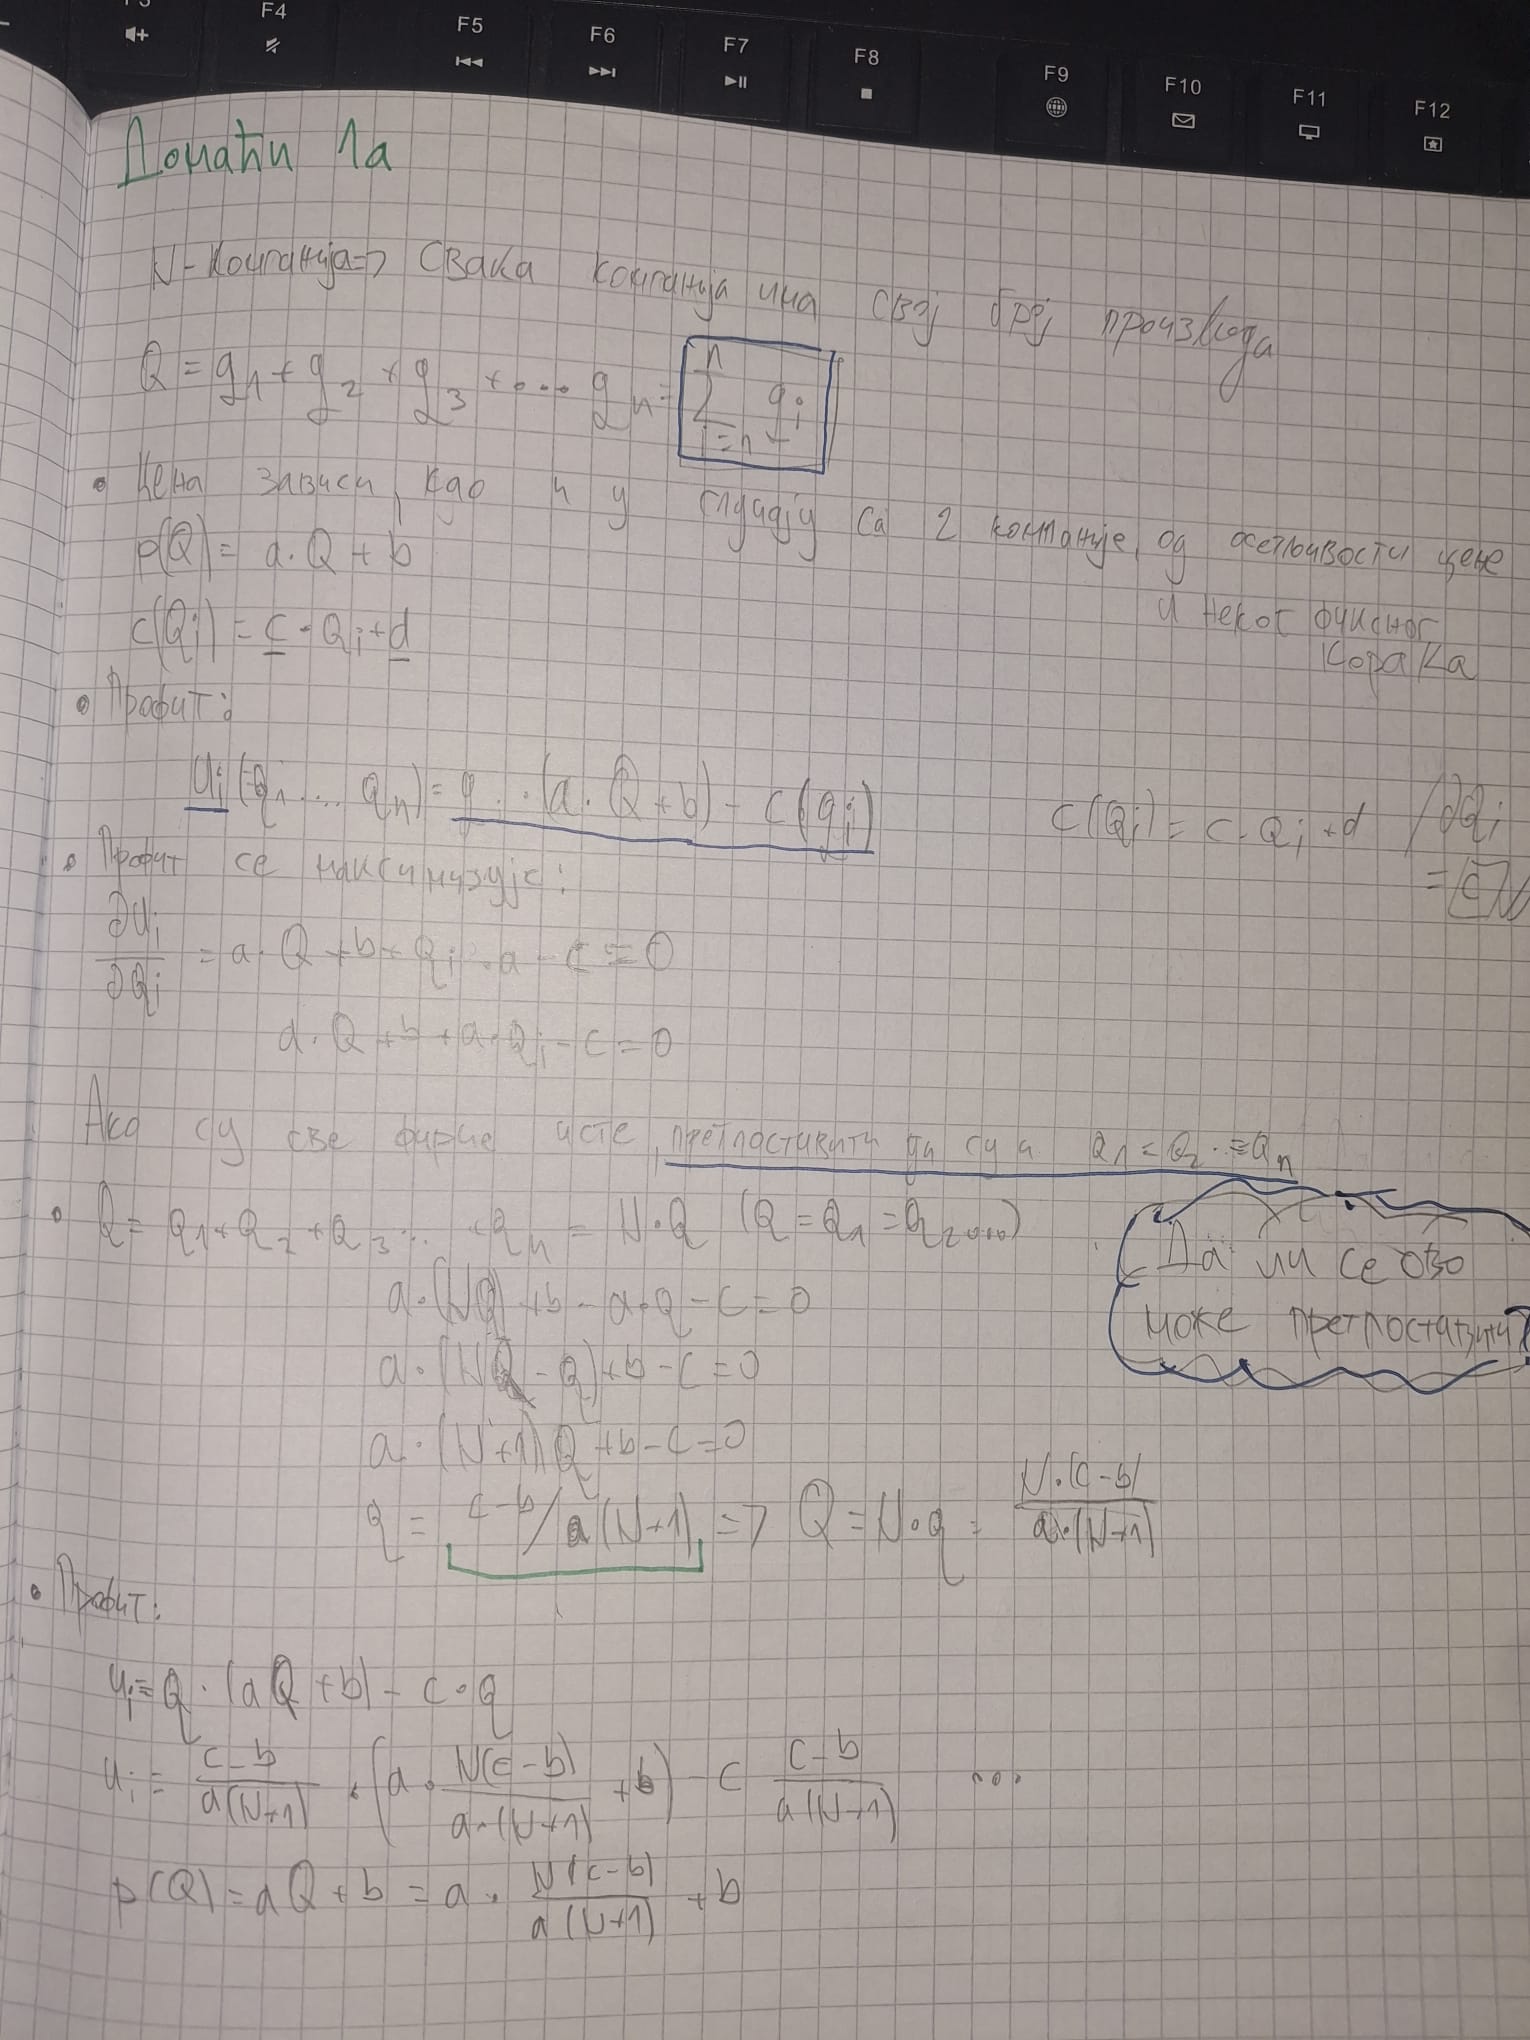 F3 F4 F5 F6 F7 F8 F9 F10 F11 F12
Домаћи 1а
N-Компанија=> Свака компанија има свој број производа
Q = q1 + q2 + q3 + .... qn = n Σ i=n qi
• Цена зависи, као и у случају са 2 компаније, од осетљивости цене
и неког фиксног
корака
p(Q) = a·Q + b
c(Qi) = c·Qi+d
• Профит:
Ui(q1.... qn) = q..(a.Q+b) - c(qi)
c(Qi) = c·Qi+d /∂Qi
= c
• Профит се максимизује:
∂Ui/∂Qi = a·Q+b+Qi·a-c=0
a·Q+b+a·Qi-c=0
Ако су све фирме исте, претпоставити да су и Q1=Q2..=Qn
• Q= Q1+Q2+Q3... +qn = N·Q (Q=Q1=Q2...)
Да ли се ово
може претпоставити?
a·(NQ)+b-a·q-c=0
a·(NQ-q)+b-c=0
a·(N+1)Q+b-c=0
q = c-b/a(N+1) => Q=N·q = N·(c-b)/a·(N+1)
• Профит:
ui=q·(aQ+b)-c·q
ui= c-b/a(N+1) · (a· N(c-b)/a·(N+1) +b) - c c-b/a(N+1) ...
p(Q)=aQ+b = a· N(c-b)/a(N+1) +b